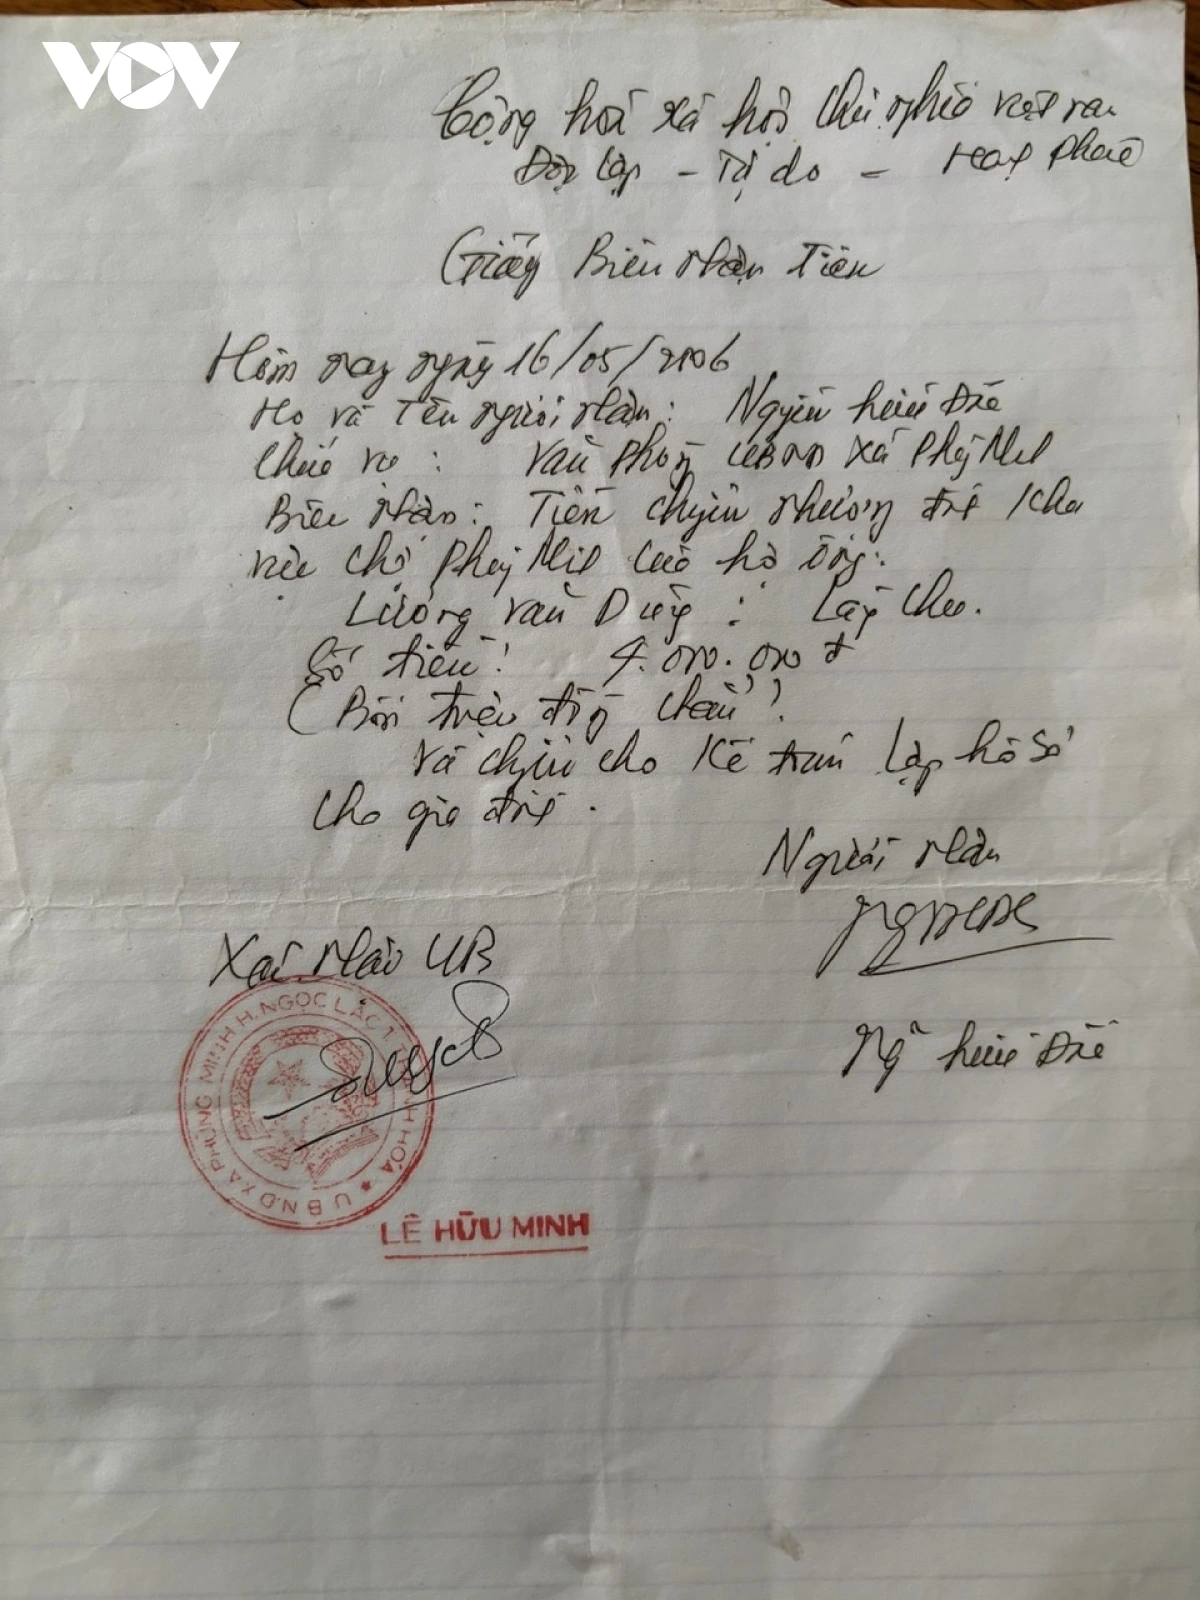 VOV
Cộng hoà xã hội chủ nghĩa việt nam
Độc lập - Tự do - Hạnh phúc
Giấy Biên nhận tiền
Hôm nay ngày 16/05/2006
Họ và tên người nhận: Nguyễn hữu
Chức vụ: Văn phòng UBND xã Phùng Minh
Biên nhận: Tiền chuyển nhượng đất khu
vực chợ Phùng Minh của hộ ông:
Lương văn Dũng:
Số tiền: 4.000.000đ
(Bốn triệu đồng chẵn).
Và chuyển cho Kế toán lập hồ sơ
cho gia đình.
Người nhận
Xác nhận UB
Ng hữu
U.B.N.D XÃ PHÙNG MINH H.NGỌC LẶC T.THANH HÓA
LÊ HỮU MINH